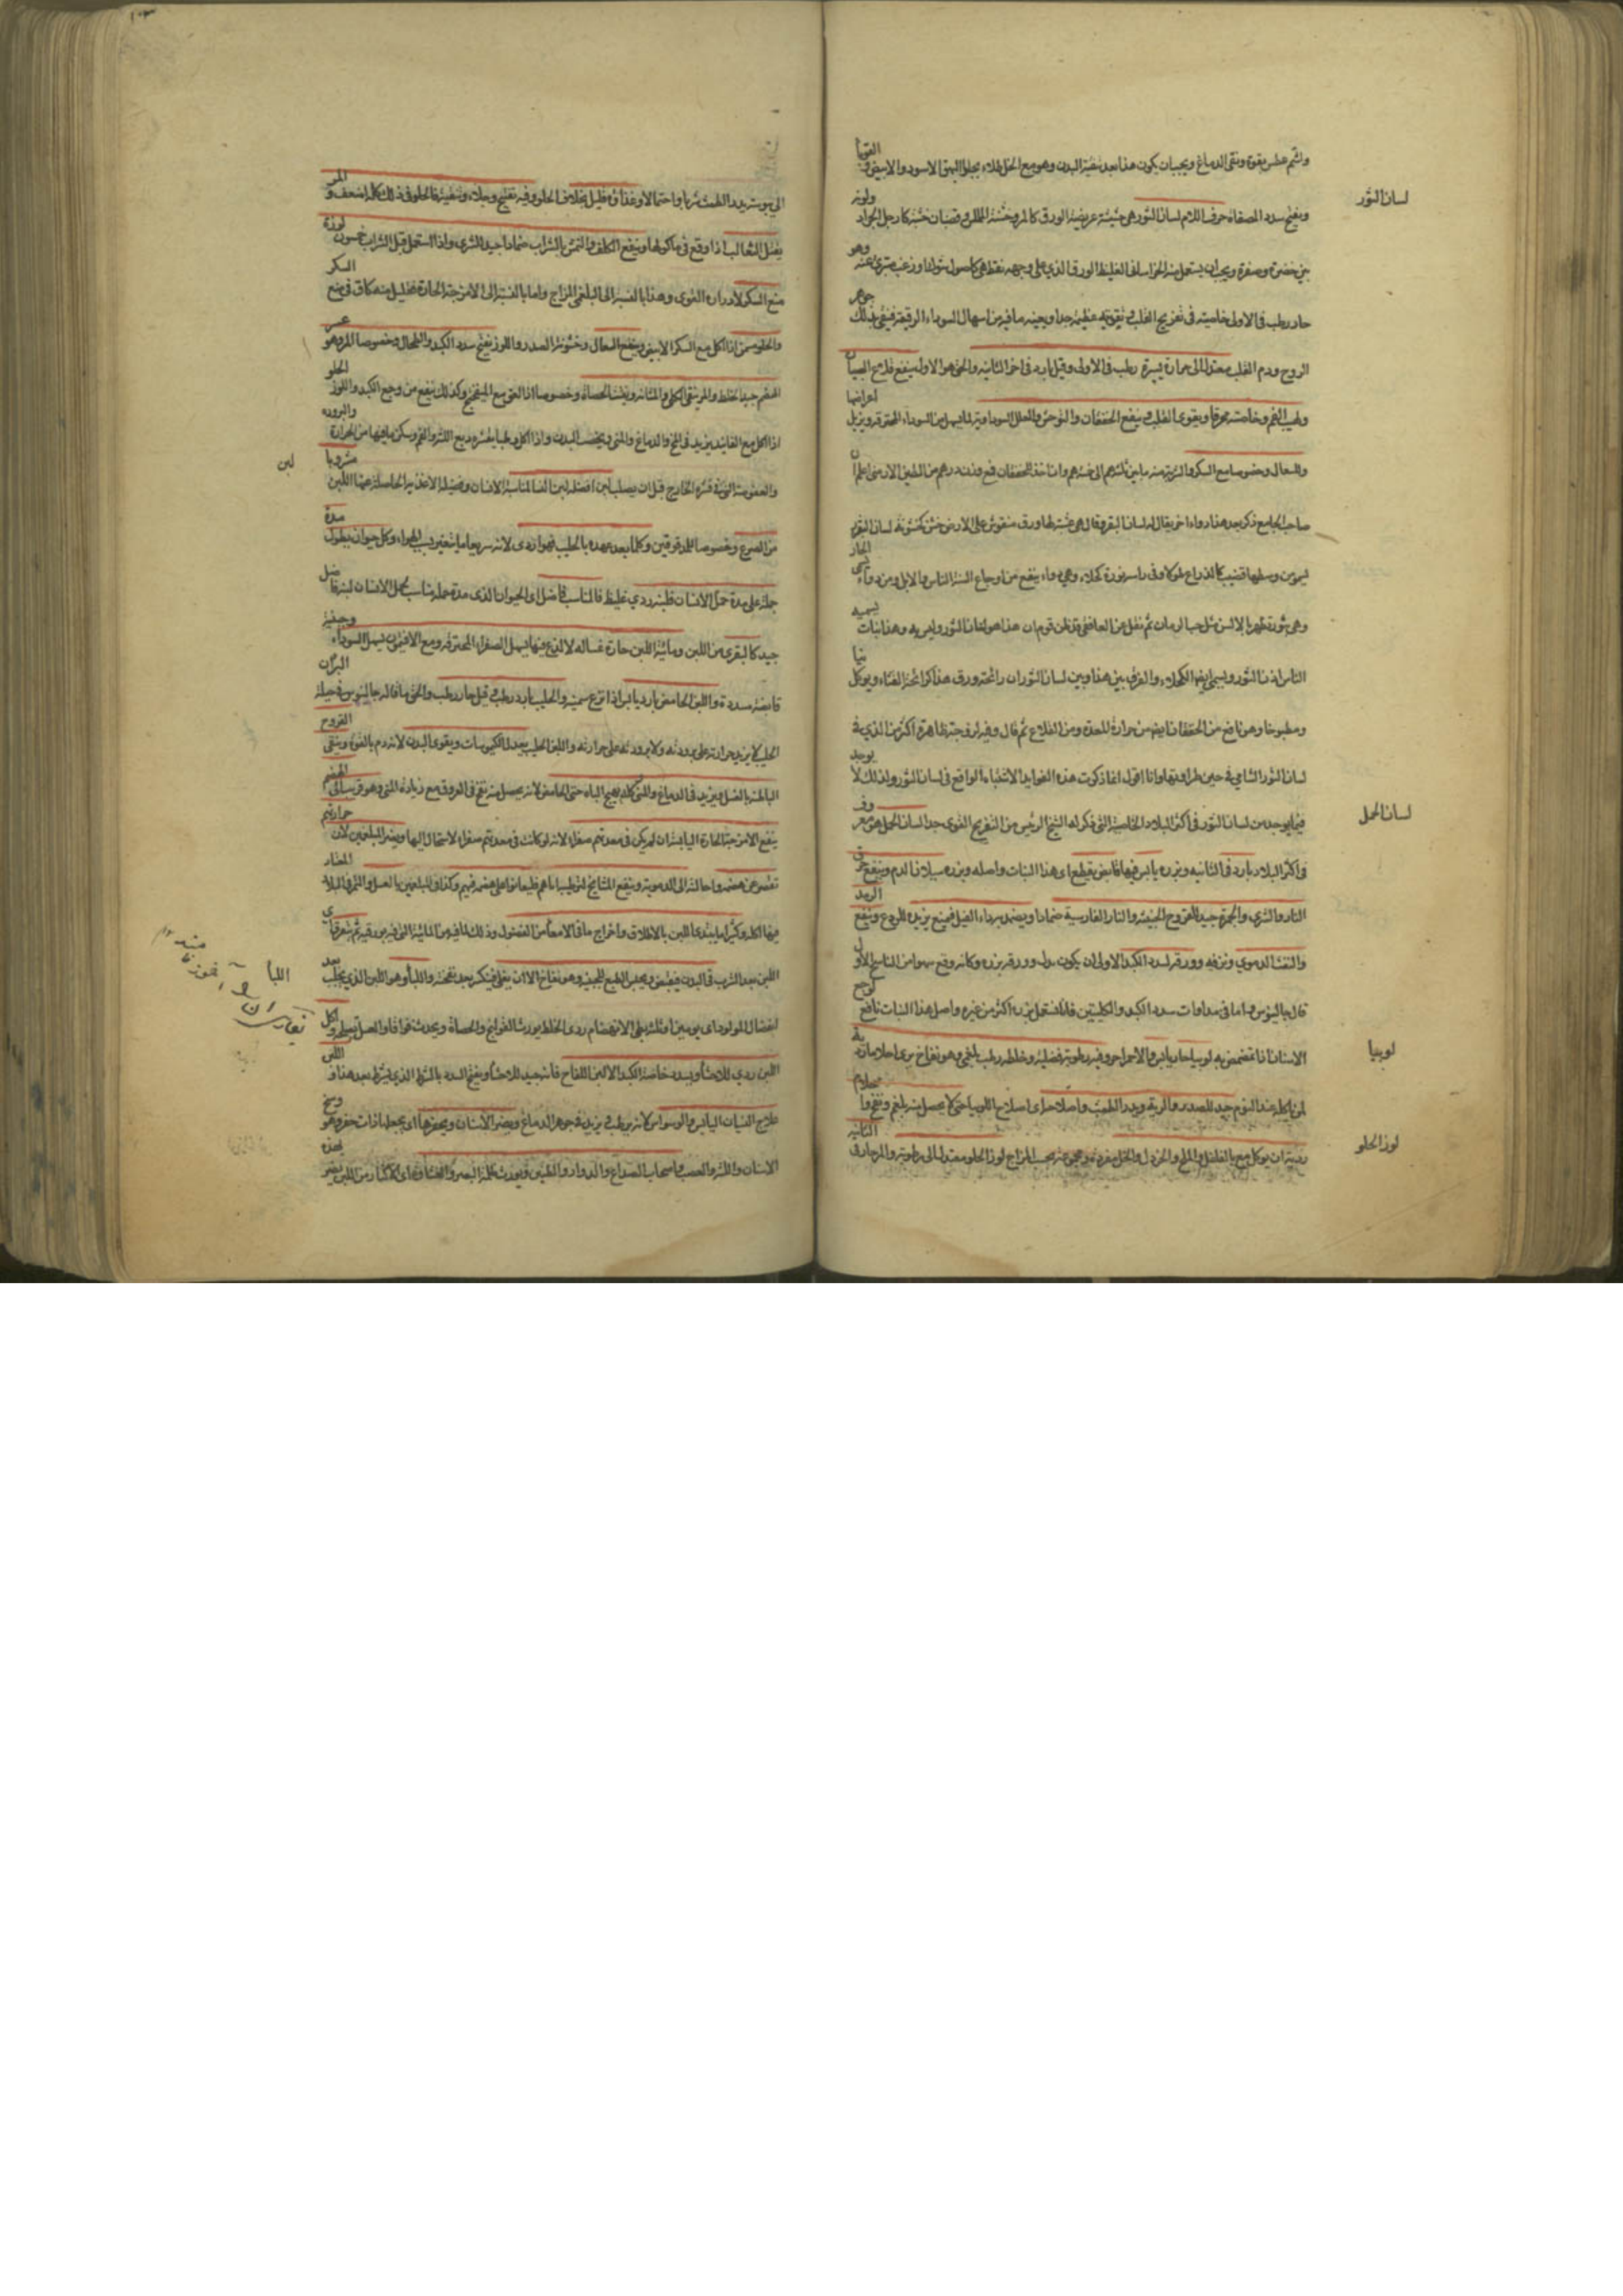 واشم عطس بقوة ونقى الدماغ ويجب ان يكون هذا بعد تنقية البدن وهو مع الخل طلاء يجلو البهق الاسود والابيض و القوبا
لسان الثور
ويفتح سدد المصفاة حرف اللام لسان الثور هي حشيشة عريضة الورق كالمرو خشنة الملمس وقضبان خشنة كارجل الجراد ولونه
بين خضرة وصفرة ويجب ان يستعمل منه الخراساني الغليظ الورق الذي على وجهه نقط هي كاصول شوك او زغب متبرئ عنه وهو
حار رطب في الاولى خاصيته في تفريح القلب وتقويته عظيمة جدا ويعينه ما فيه من اسهال السوداء الرقيقة فينقى بذلك جوهر
الروح ودم القلب معتدل الى حرارة يسيرة رطب في الاولى وقيل بارد في اخر الثانية والحق هو الاول ينفع قلاع الصبيان
ولهيب الفم وخاصته محرقا ويقوى القلب وينفع الخفقان والتوحش والعلل السوداوية لما يسهل من السوداء المحترقة ويزيل اعراضها
والسعال وخصوصا مع السكر والشربة منه ما بين ثلثة دراهم الى خمسة دراهم وان اخذ للخفقان فمع وزن درهم من الطين الارمني اعلم ان
صاحب الجامع ذكر بعد هذا دواء اخر يقال له لسان البقر وقال هي عشبة لها ورق منفوش على الارض خشن كخشونة لسان البقر
وهي بثور تظهر بالالسن مثل حب الرمان ثم نقل عن الغافقي قد ظن قوم ان هذا هو لسان الثور وليس به وهذا نبات يسميه
الناس اذن الثور ويسمى ايضا الكحلاء والفرق بين هذا وبين لسان الثور ان رائحة ورق هذا كرائحة القثاء ويوكل نيا
ومطبوخا وهو نافع من الخفقان نافع من حرارة المعدة ومن القلاع ثم قال وفيه لزوجة ظاهرة اكثر من الذي في
لسان الثور الشامي في حين طراوتها وانا اقول انما ذكرت هذه الفوايد الاشتباه الواقع في لسان الثور ولذلك لا يوجد
لسان الحمل
فيما يوجد من لسان الثور في اكثر البلاد الخاصية التي ذكر له الشيخ الرئيس من التفريح القوى جدا لسان الحمل هو معروف
في اكثر البلاد بارد في الثانية وبزره يابس فيها قابض يقطع اي هذا النبات واصله وبزره سيلان الدم وينفع حرق
النار والشرى والجمرة جيد للقروح الخبيثة والنار الفارسية ضمادا ويضمد به داء الفيل فيمنع تزيده للردع وينفع الرمد
والنفث الدموي ونزفه وورقه لسدد الكبد الاولى ان يكون بدل وورقه بزره وكانه وقع سهوا من الناسخ الاول
قال جالينوس واما في مداوات سدد الكبد والكليتين فانا نستعمل بزره اكثر من غيره واصل هذا النبات نافع لوجع
لوبيا
الاسنان اذا تمضمض به لوبيا حار يابس والاحمر احر وفيه رطوبة فضلية وخلطه رطب بلغمي وهو نفاخ يرى احلاما ردية
لمن ياكله عند النوم جيد للصدر والرية ويدر الطمث واصلاحه اي اصلاح اللوبيا حتى لا يحصل منه بلغم ونفخ واحلام
لوز الحلو
ردية ان يوكل مع الفلفل والملح والخردل والخل مفردة ومجموعة بحسب المزاج لوز الحلو معتدل الى رطوبة والمر حار في الثانية
الى يبوسة يدر الطمث شربا واحتمالا وغذاؤه قليل بخلاف الحلو وفيه تفتيح وجلاء وتنقية والحلو في ذلك كله اضعف والمر
يقتل الثعالب اذا وقع في ماكولها وينفع الكلف والنمش بالشراب ضمادا جيد للشرى واذا استعمل قبل الشراب خمسون لوزة
منع السكر لادراره القوى وهذا بالنسبة الى البلغمي المزاج واما بالنسبة الى الامزجة الحارة فقليل منه كاف في منع السكر
والحلو يسمن اذا اكل مع السكر الابيض وينفع السعال وخشونة الصدر واللوز يفتح سدد الكبد والطحال وخصوصا المر وهو عسر
الهضم جيد الخلط والمر ينقى الكلى والمثانة ويفتت الحصاة وخصوصا اذا لعق مع الميفختج وكذلك ينفع من وجع الكبد واللوز الحلو
اذا اكل مع الفانيد يزيد في المخ والدماغ والمنى ويخصب البدن واذا اكل رطبا بقشره دبغ اللثة والفم وسكن ما فيها من الحرارة والبرودة
لبن
والعفوصة التي في قشره الخارج قبل ان يصلب لبن افضله لبن النسا لمناسبة الانسان وفضيلة الاغتذاء الحاصلة عنها اللبن مشروبا
من الضرع وخصوصا للمدقوقين وكلما بعد عهده بالحليب فهو اردى لانه سريعا ما يتغير بسبب الهواء وكل حيوان يطول مدة
حمله على مدة حمل الانسان فلبنه ردي غليظ فالمناسب فاضل اي الحيوان الذي مدة حمله مناسب لحمل الانسان لبنه فاضل
جيد كالبقرى من اللبن ومائية اللبن حارة غسالة لا لذع فيها يسهل الصفراء المحترقة ومع الافتيمون يسهل السوداء وجبنية
قابضة مسددة واللبن الحامض بارد يابس اذا نزع سمنه والحليب بارد رطب وقيل حار رطب والحق ما قاله جالينوس في حيلة البرء ان
الحليب لا يزيد حرارته على برودته ولا برودته على حرارته واللبن الحليب يعدل الكيموسات ويقوى البدن لانه دم بالقوة وينقى القروح
الباطنة بالغسل ويزيد في الدماغ والمنى كله يهيج الباه حتى الحامض لانه يحصل منه نفخ في العروق مع زيادة المنى وهو قريب الى الهضم
ينفع الامزجة الحارة اليابسة ان لم يكن في معدتهم صفراء لانه لو كانت في معدتهم صفراء لاستحال اليها ويضر البلغمين لان حرارتهم
تقصر عن هضمه واحالته الى الدموية وينفع المشايخ لترطيب ابدانهم
اللبأ
اللبن بعد الشرب في البدن فيقبض ويحبس الطبع للجبنية وهو نفاخ الا ان يغلى فينكسر بعد نفخته واللبأ وهو اللبن الذي يحلب بعد
انفصال المولود اي يومين او ثلثة بطى الانهضام ردى الخلط يورث القولنج والحصاة ويحدث فواقا والعسل يصلحه واكل
اللبن ردي للاحشاء ويسدد خاصة الكبد الا لبن اللقاح فانه جيد للاحشاء ويفتح السدد بالشرط الذي يشترط بعد هذا واللبن
علاج النسيان اليابس والوسواس لانه يرطب ويزيد في جوهر الدماغ ويضر الاسنان ويحفرها اي يجعلها ذات حفر وهو وسخ
الاسنان واللثة والعصب واصحاب الصداع والدوار والطنين ويورث ظلمة البصر والغشاوة اي الاكثار من اللبن يضر بهذه